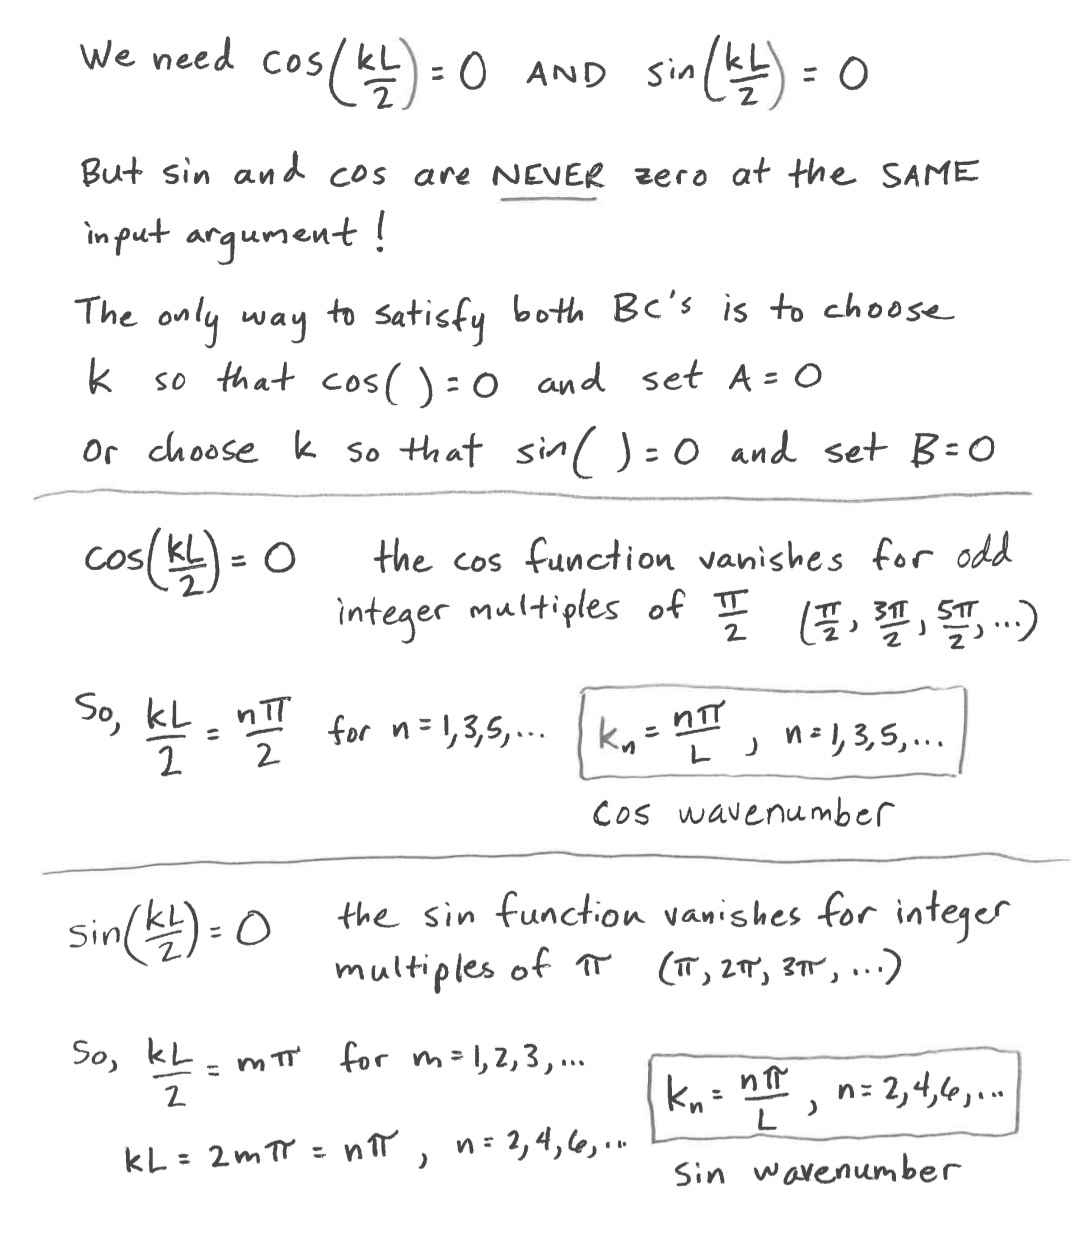 We need cos(kL/2) = 0 AND sin(kL/2) = 0
But sin and cos are NEVER zero at the SAME
input argument!
The only way to satisfy both BC's is to choose
k so that cos( ) = 0 and set A = 0
or choose k so that sin( ) = 0 and set B = 0
cos(kL/2) = 0 the cos function vanishes for odd
integer multiples of π/2 (π/2, 3π/2, 5π/2, ...)
So, kL/2 = nπ/2 for n = 1,3,5,... kn = nπ/L, n = 1,3,5,...
cos wavenumber
sin(kL/2) = 0 the sin function vanishes for integer
multiples of π (π, 2π, 3π, ...)
So, kL/2 = mπ for m = 1,2,3,... kn = nπ/L, n = 2,4,6,...
kL = 2mπ = nπ, n = 2,4,6,...
sin wavenumber